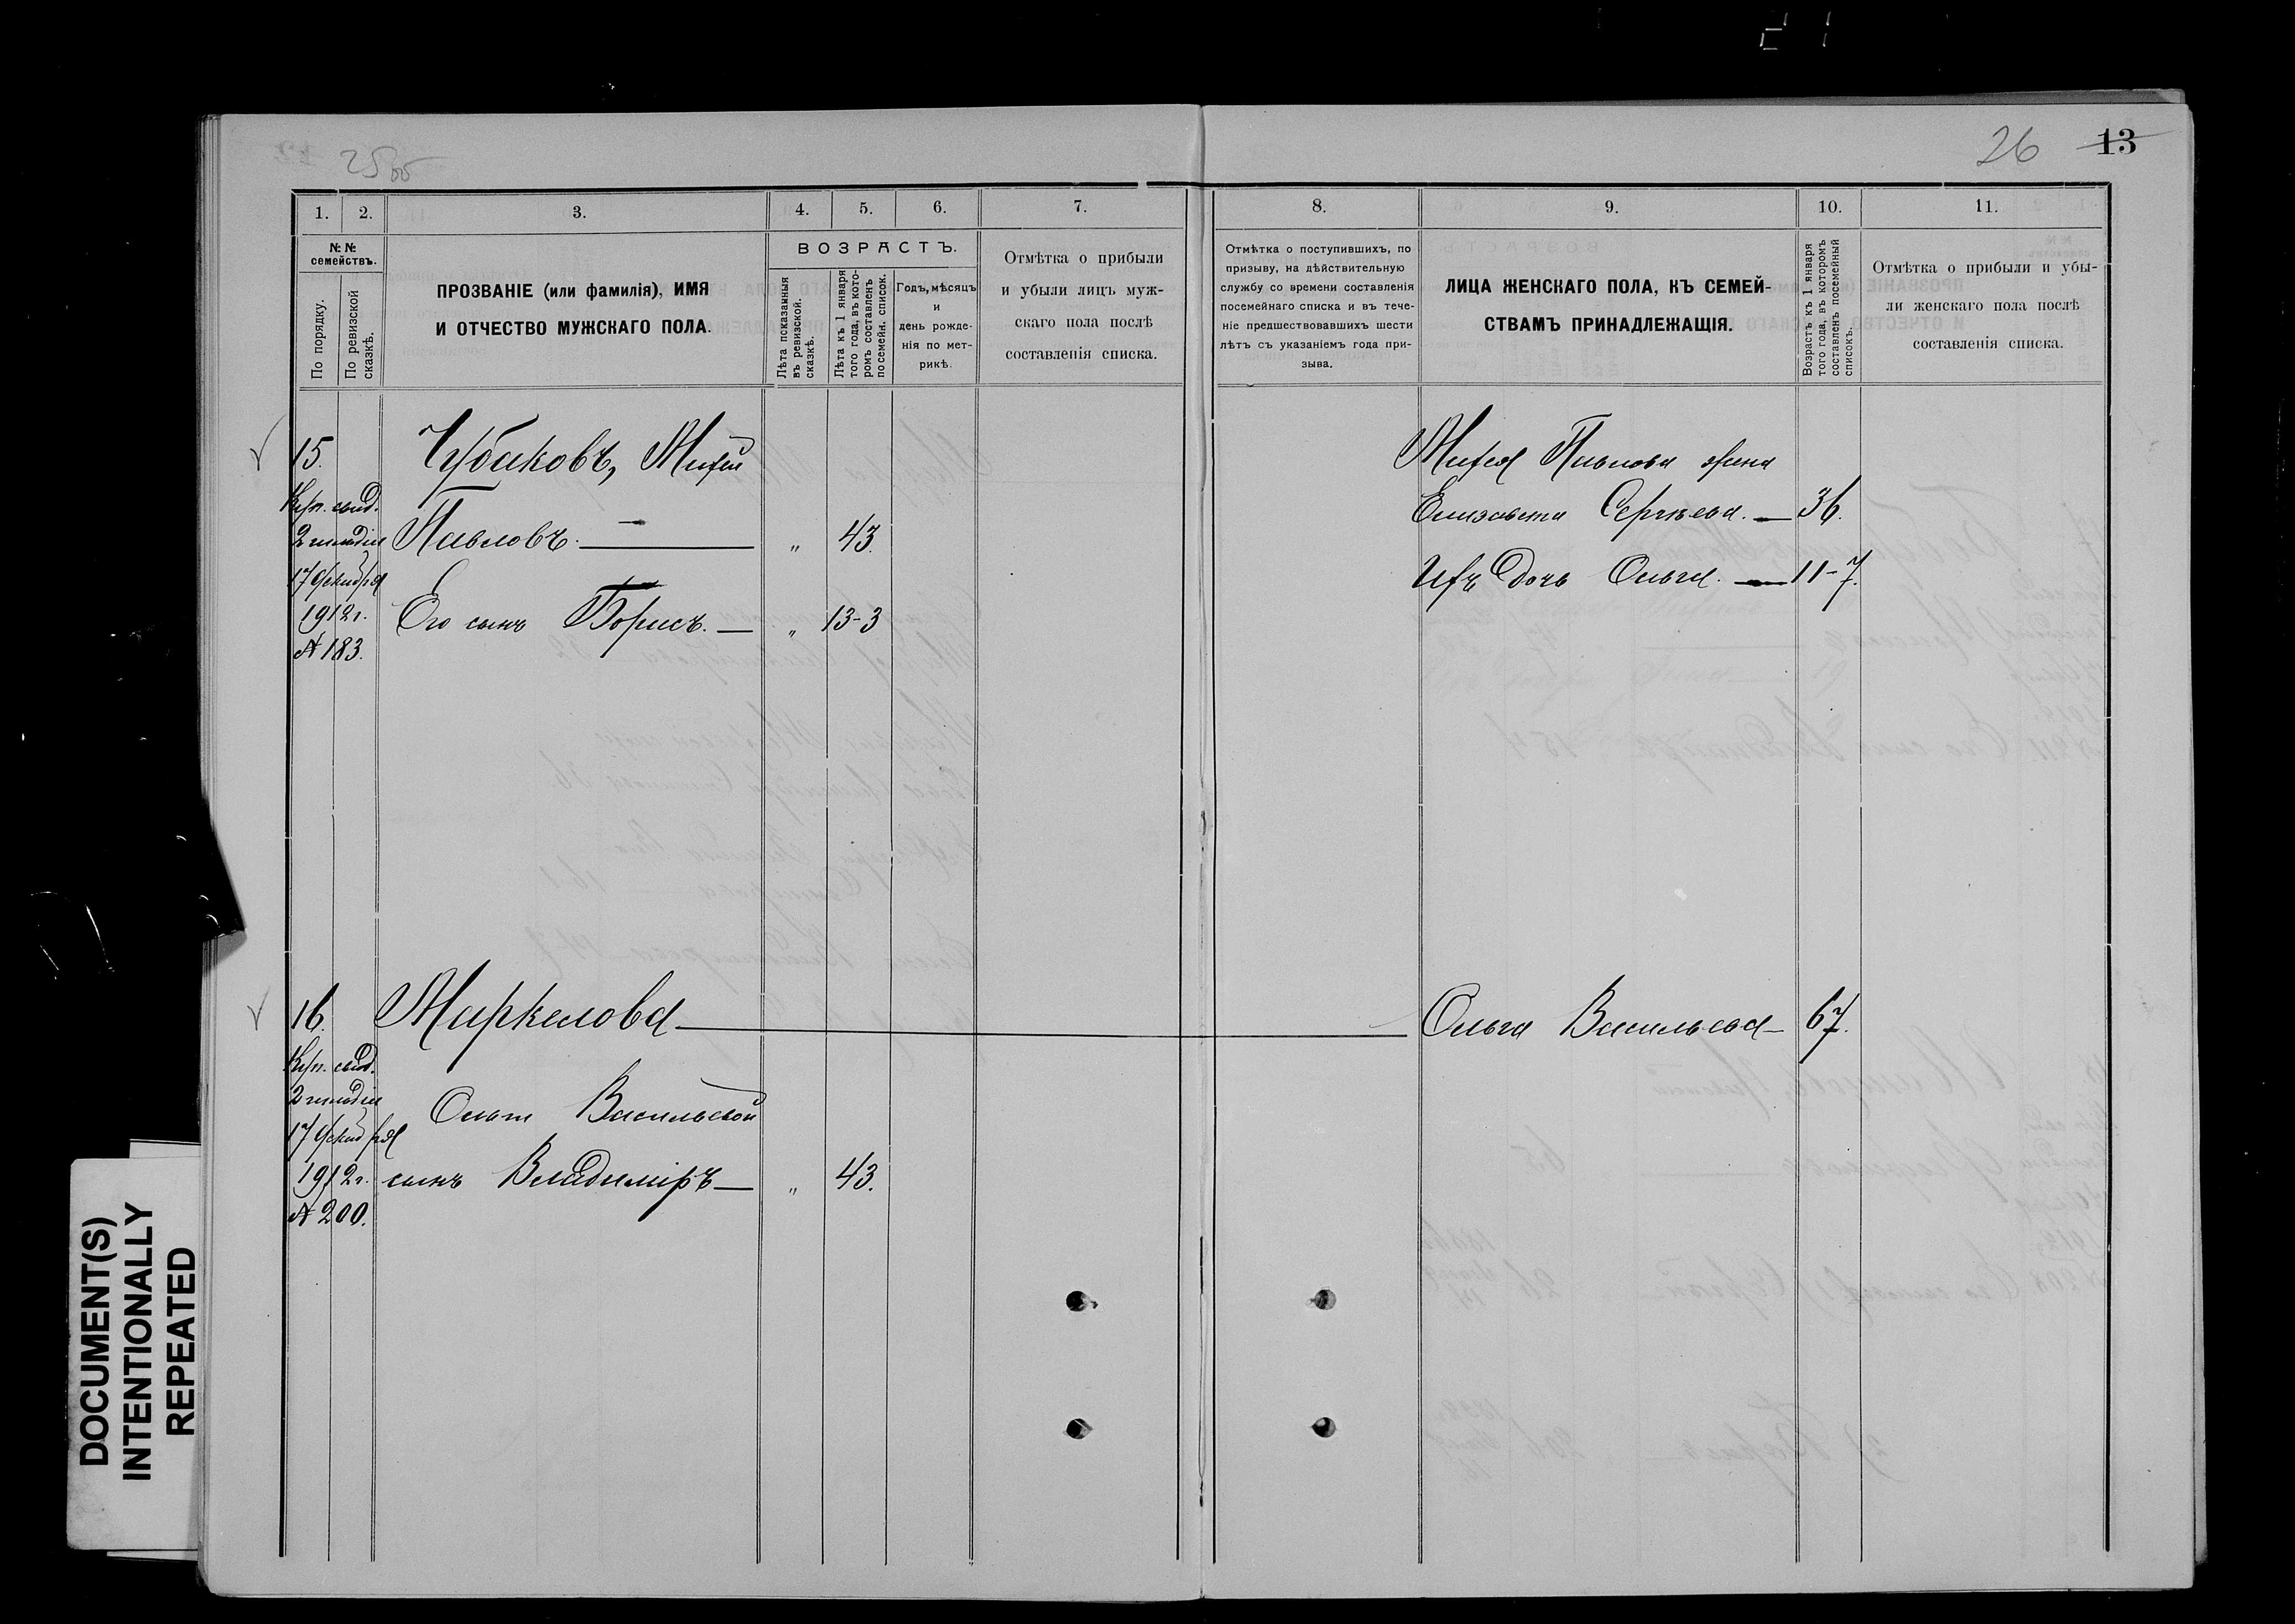 25об
26 13
1. 2. 3. 4. 5. 6. 7.
№№ семействъ.
По порядку.
По ревизской сказкѣ.
ПРОЗВАНІЕ (или фамилія), ИМЯ
И ОТЧЕСТВО МУЖСКАГО ПОЛА.
ВОЗРАСТЪ.
Лѣта показанныя
въ ревизской.
сказкѣ.
Лѣта къ 1 января
того года, въ кото-
ромъ составленъ
посемейн. список.
Годъ, мѣсяцъ
и
день рожде-
нія по мет-
рикѣ.
Отмѣтка о прибыли
и убыли лицъ муж-
скаго пола послѣ
составленія списка.
15.
Куп. свид.
2 гильдіи
17 Декабря
1912 г.
№ 183.
Чубаковъ, Михей
Павловъ. — „ 43.
Его сынъ Борисъ. — „ 13-3
16.
Куп. свид.
2 гильдіи
17 Декабря
1912 г.
№ 200.
Маркелова
Ольги Васильевой
сынъ Владиміръ — „ 43.
8. 9. 10. 11.
Отмѣтка о поступившихъ, по
призыву, на дѣйствительную
службу со времени составленія
посемейнаго списка и въ тече-
ніе предшествовавшихъ шести
лѣтъ съ указаніемъ года при-
зыва.
ЛИЦА ЖЕНСКАГО ПОЛА, КЪ СЕМЕЙ-
СТВАМЪ ПРИНАДЛЕЖАЩІЯ.
Возрастъ къ 1 января
того года, въ которомъ
составленъ посемейный
списокъ.
Отмѣтка о прибыли и убы-
ли женскаго пола послѣ
составленія списка.
Михея Павлова жена
Елизавета Сергѣева. — 36.
Ихъ дочь Ольга. — 11-7.
Ольга Васильева — 67.
DOCUMENT(S)
INTENTIONALLY
REPEATED